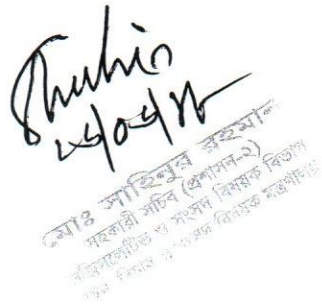 Shahin
মোঃ সাহিনুর রহমান
সহকারী সচিব (প্রশাসন-২)
লেজিসলেটিভ ও সংসদ বিষয়ক বিভাগ
আইন বিচার ও সংসদ বিষয়ক মন্ত্রণালয়